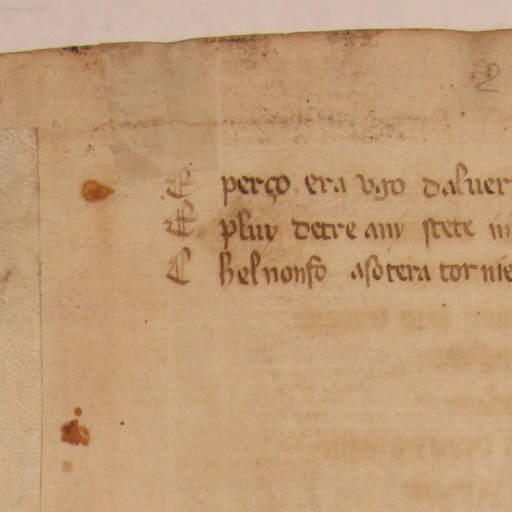 2
E perço era vgo daluer
E pluy de tre any stete in
C hel non fo aso tera tornie